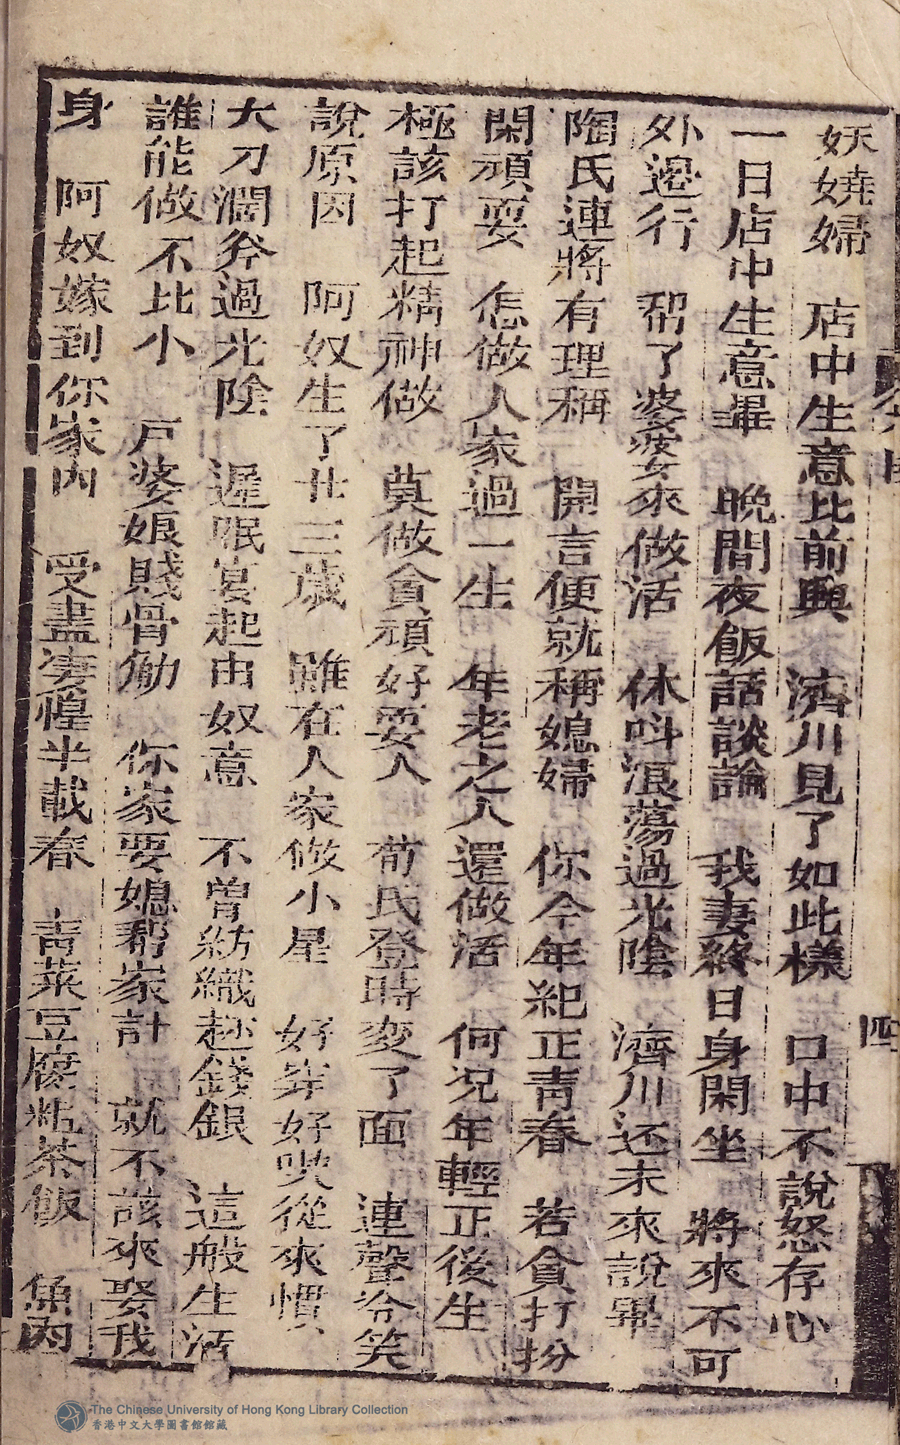 妖嬈婦　店中生意比前興　濟川見了如此樣　口中不說怒存心
一日店中生意畢　晚間夜飯話談論　我妻終日身閑坐　將來不可
外邊行　帮了婆婆來做活　休呌浪蕩過光陰　濟川还未來說畢
陶氏連將有理稱　開言便就稱媳婦　你今年紀正青春　若貪打扮
閑頑耍　怎做人家過一生　年老之人還做活　何况年輕正後生
極該打起精神做　莫做貪頑好耍人　荀氏登時变了面　連聲冷笑
說原因　阿奴生了廿三歲　雖在人家做小星　好穿好吃從來慣
大刀濶斧過光陰　遲眠宴起由奴意　不曾紡織趂錢銀　這般生活
誰能做　不比小戶婆娘賤骨觔　你家要媳帮家計　就不該來娶我
身　阿奴嫁到你家內　受盡凄惶半載春　青菜豆腐粘茶飯　魚肉
四
The Chinese University of Hong Kong Library Collection
香港中文大學圖書館館藏